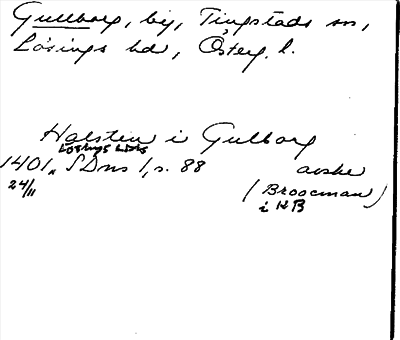 Gullborg, by, Tingstads sn,
Lösings hd, Österg. l.
Halsten i Gulborg
Lösings hds
1401 24/11 SDns 1, s. 88 avskr
(Broocman)
i KB